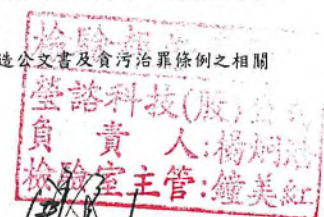 造公文書及貪污治罪條例之相關
檢驗報
瑩諮科技(股)公司
負責人:楊炯
檢驗室主管:鐘美紅